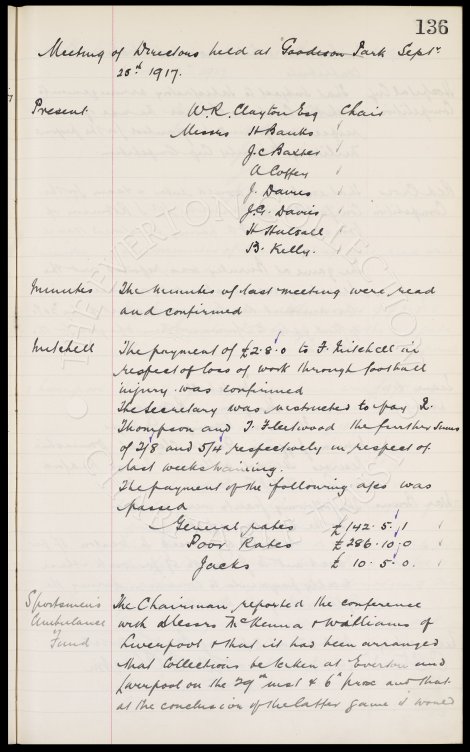 136
Meeting of Directors held at Goodison Park Septr
25th 1917.
Present W.R. Clayton Esq Chair
Messrs H Banks
J.C Baxter
A Coffey
J. Davies
J.G. Davies
H Halsall
B. Kelly.
Minutes The Minutes of last meeting were read
and confirmed
Mitchell The payment of £2.8.0 to F. Mitchell in
respect of loss of work through football
injury was confirmed
The Secretary was instructed to pay R.
Thompson and T. Fleetwood the further sums
of 2/8 and 5/4 respectively in respect of
last weeks training.
The payment of the following a/cs was
passed
General rates £142.5.1
Poor Rates £286.10.0
Jacks £10.5.0.
Sportsmen's Ambulance Fund The Chairman reported the conference
with Messrs McKenna & Williams of
Liverpool & that it had been arranged
that collections be taken at Everton and
Liverpool on the 29th inst & 6th prox and that
at the conclusion of the latter game it would
THE EVERTON COLLECTION